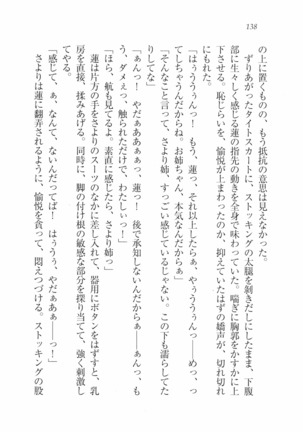 138
の上に置くものの、もう抵抗の意思は見えなかった。
ずりあがったタイトスカートに、ストッキングの太腿を剥きだしにしたまま、下腹
部に生々しく感じる蓮の指先の動きを全身で味わっていた。喘ぎに胸郭をかすかに上
下させる。恥じらいを、愉悦が上まわったのか、抑えていたはずの嬌声が、切れ切れ
にもれた。
「はぅううんっ！　もう、蓮っ、それ以上したらぁ、やぅううんっ――めっ、っ
てしちゃうんだからね。お姉ちゃん、本気なんだからぁ」
「そんなこと言って、さより姉、すっごい感じているじゃない。この下も濡らしてた
りしてな」
「ぁんっ！　やだぁあああぁっ、蓮っ！　後で承知しないんだからぁ――ぁんっ、も
う、ダメぇっ、触られただけで、わたしぃっ！」
「ほら、航も見てるよ。素直に感じたら、さより姉っ」
蓮は片方の手をさよりのスーツのなかに差し入れて、器用にボタンをはずすと、乳
房を直接、揉みあげる。同時に、脚の付け根の敏感な部分を探り当てて、強く刺激し
てやる。
「感じて、ぁ、なんて、ないんだってば！　はぅうぅ、やだぁあぁ――っ！」
さよりは蓮に翻弄されるように、愉悦を貪って、悶えつづける。ストッキングの股